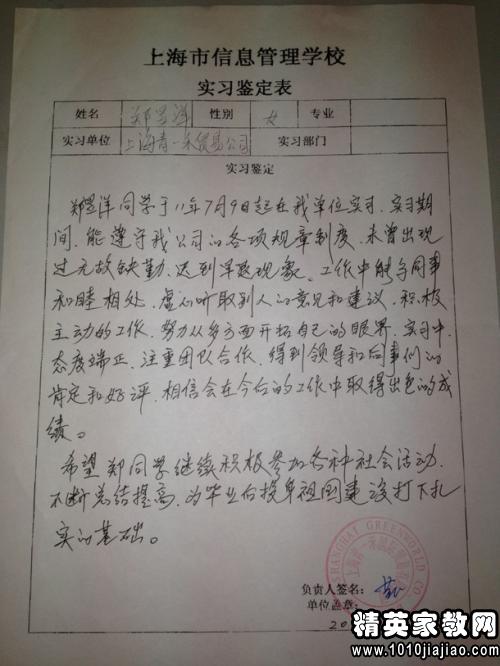 上海市信息管理学校
实习鉴定表
姓名 郑昱洋 性别 女 专业
实习单位 上海青一禾贸易公司 实习部门
实习鉴定
郑昱洋同学于11年7月9日起在我单位实习。实习期
间,能遵守我公司的各项规章制度,未曾出现
过无故缺勤、迟到早退现象。工作中能与同事
和睦相处,虚心听取别人的意见和建议,积极
主动的工作,努力从多方面开拓自己的眼界。实习中,
态度端正,注重团队合作,得到领导和同事们的
肯定和好评,相信会在今后的工作中取得出色的成
绩。
希望郑同学继续积极参加各种社会活动,
不断总结提高,为毕业后投身祖国建设打下扎
实的基础。
SHANGHAI GREENWORLD CO
负责人签名:
单位盖章:
20
精英家教网
www.1010jiajiao.com